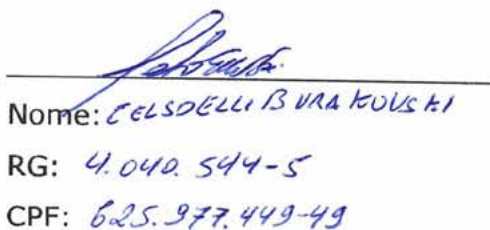 Nome: CELSDELLI BURAKOVSKI
RG: 4.040.544-5
CPF: 625.977.449-49